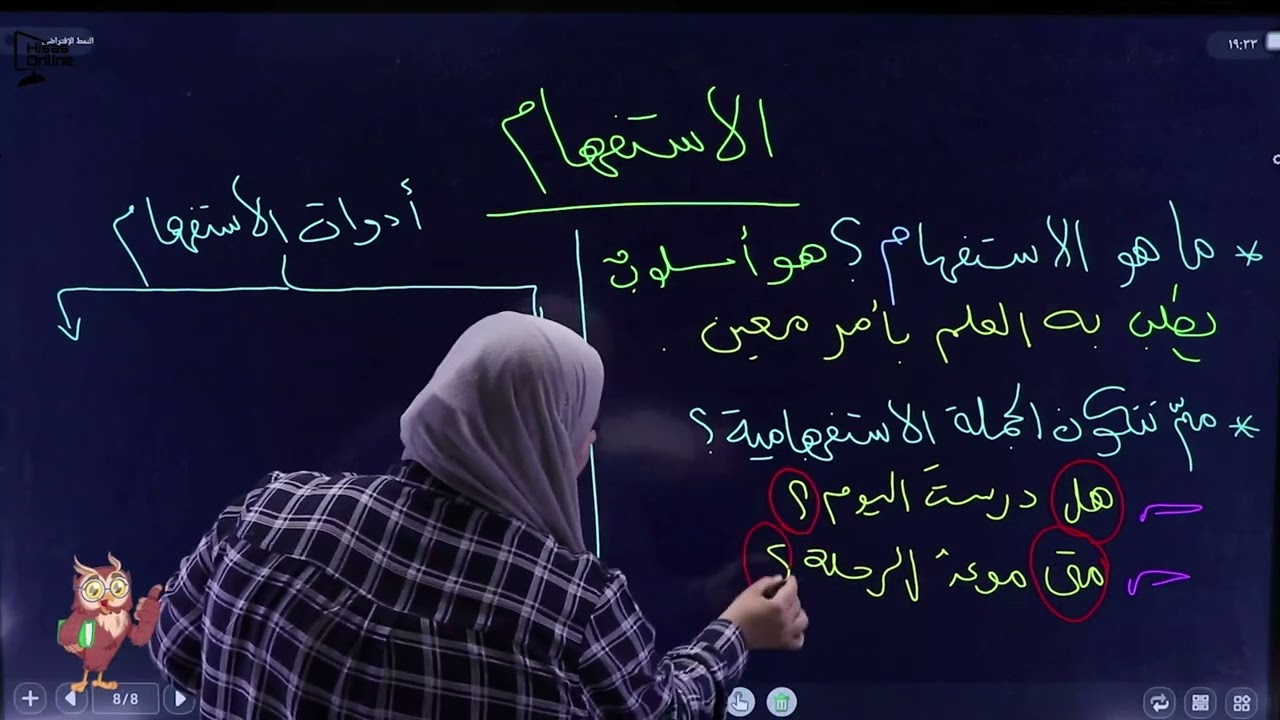 Hisas
Online
النمط الإفتراضي
١٩:٣٣
الاستفهام
* ما هو الاستفهام؟ هو أسلوب
يطلب به العلم بأمر معين .
* ممّ تتكون الجملة الاستفهامية؟
هل درستَ اليوم؟
متى موعدُ الرحلة؟
أدوات الاستفهام
8/8